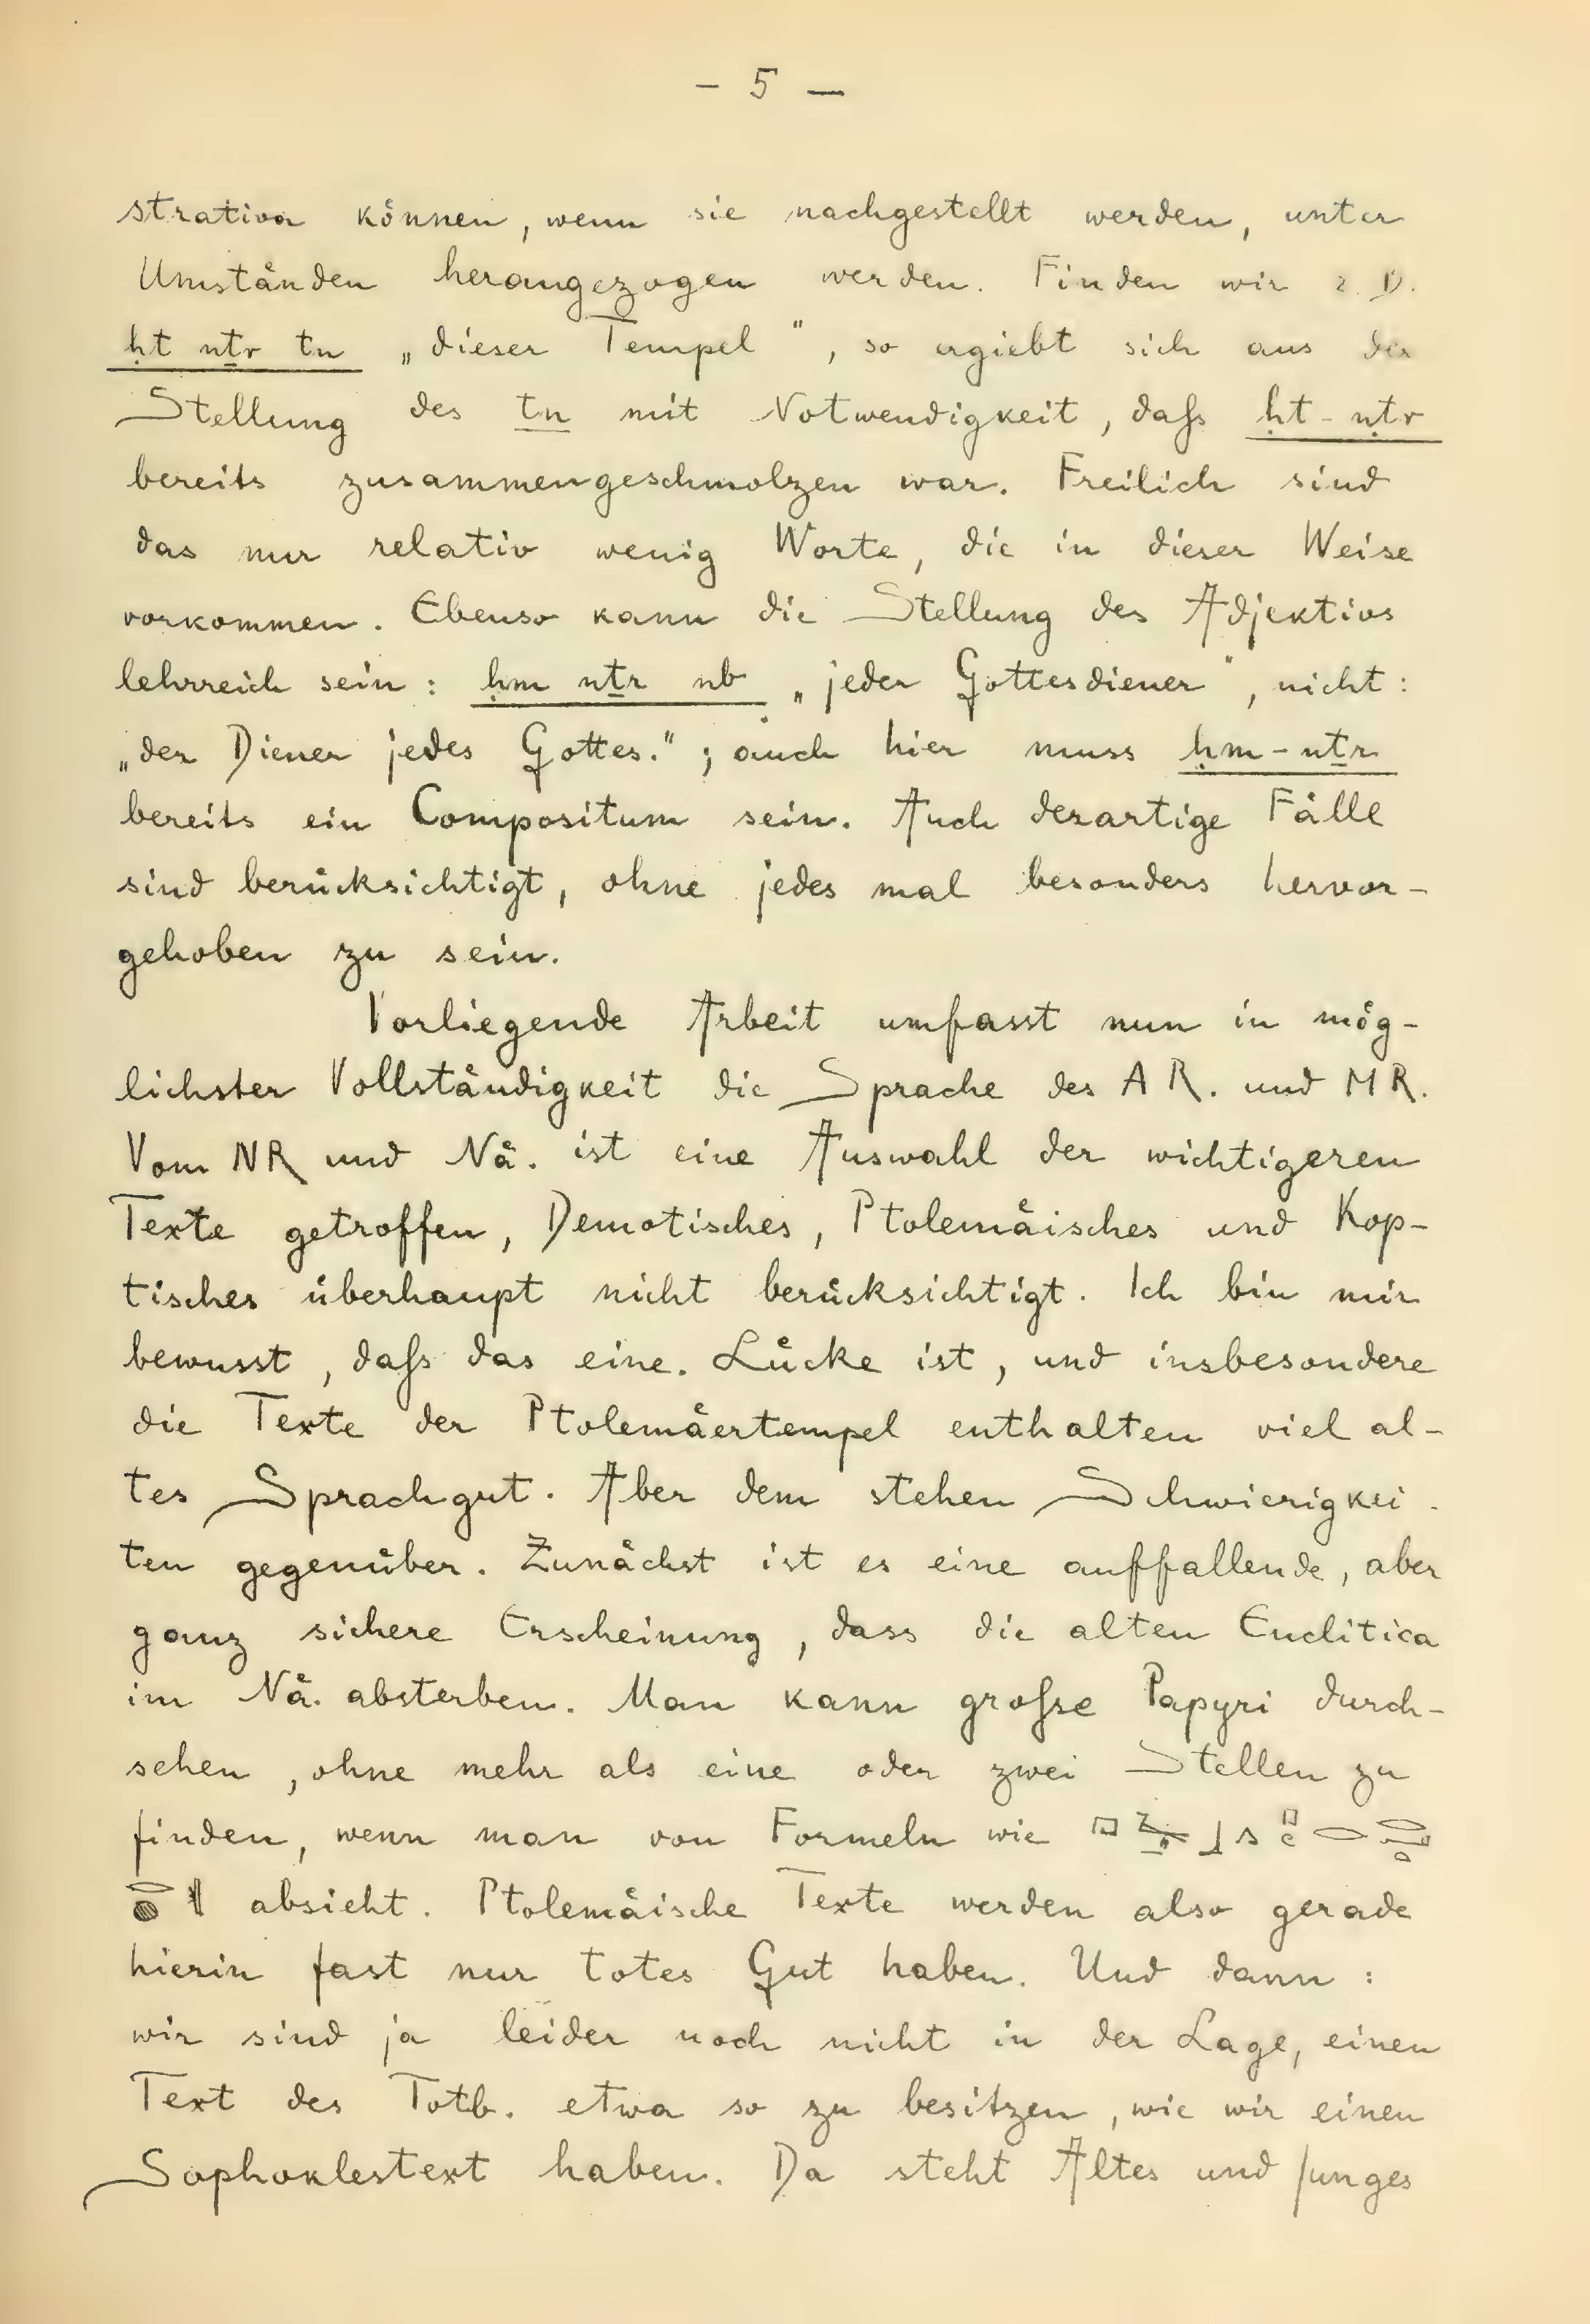 – 5 –
strativa können, wenn sie nachgestellt werden, unter
Umständen herangezogen werden. Finden wir z. B.
ḥt nṯr tn „dieser Tempel“, so ergiebt sich aus der
Stellung des tn mit Notwendigkeit, daſs ḥt-nṯr
bereits zusammengeschmolzen war. Freilich sind
das nur relativ wenig Worte, die in dieser Weise
vorkommen. Ebenso kann die Stellung des Adjektivs
lehrreich sein: ḥm nṯr nb „jeder Gottesdiener“, nicht:
„der Diener jedes Gottes.“; auch hier muss ḥm-nṯr
bereits ein Compositum sein. Auch derartige Fälle
sind berücksichtigt, ohne jedes mal besonders hervor-
gehoben zu sein.
Vorliegende Arbeit umfasst nun in mög-
lichster Vollständigkeit die Sprache des AR. und MR.
Vom NR und Nä. ist eine Auswahl der wichtigeren
Texte getroffen, Demotisches, Ptolemäisches und Kop-
tisches überhaupt nicht berücksichtigt. Ich bin mir
bewusst, daſs das eine. Lücke ist, und insbesondere
die Texte der Ptolemäertempel enthalten viel al-
tes Sprachgut. Aber dem stehen Schwierigkei-
ten gegenüber. Zunächst ist es eine auffallende, aber
ganz sichere Erscheinung, dass die alten Enclitica
im Nä. absterben. Man kann groſse Papyri durch-
sehen, ohne mehr als eine oder zwei Stellen zu
finden, wenn man von Formeln wie
absieht. Ptolemäische Texte werden also gerade
hierin fast nur totes Gut haben. Und dann:
wir sind ja leider noch nicht in der Lage, einen
Text des Totb. etwa so zu besitzen, wie wir einen
Sophoklestext haben. Da steht Altes und Junges